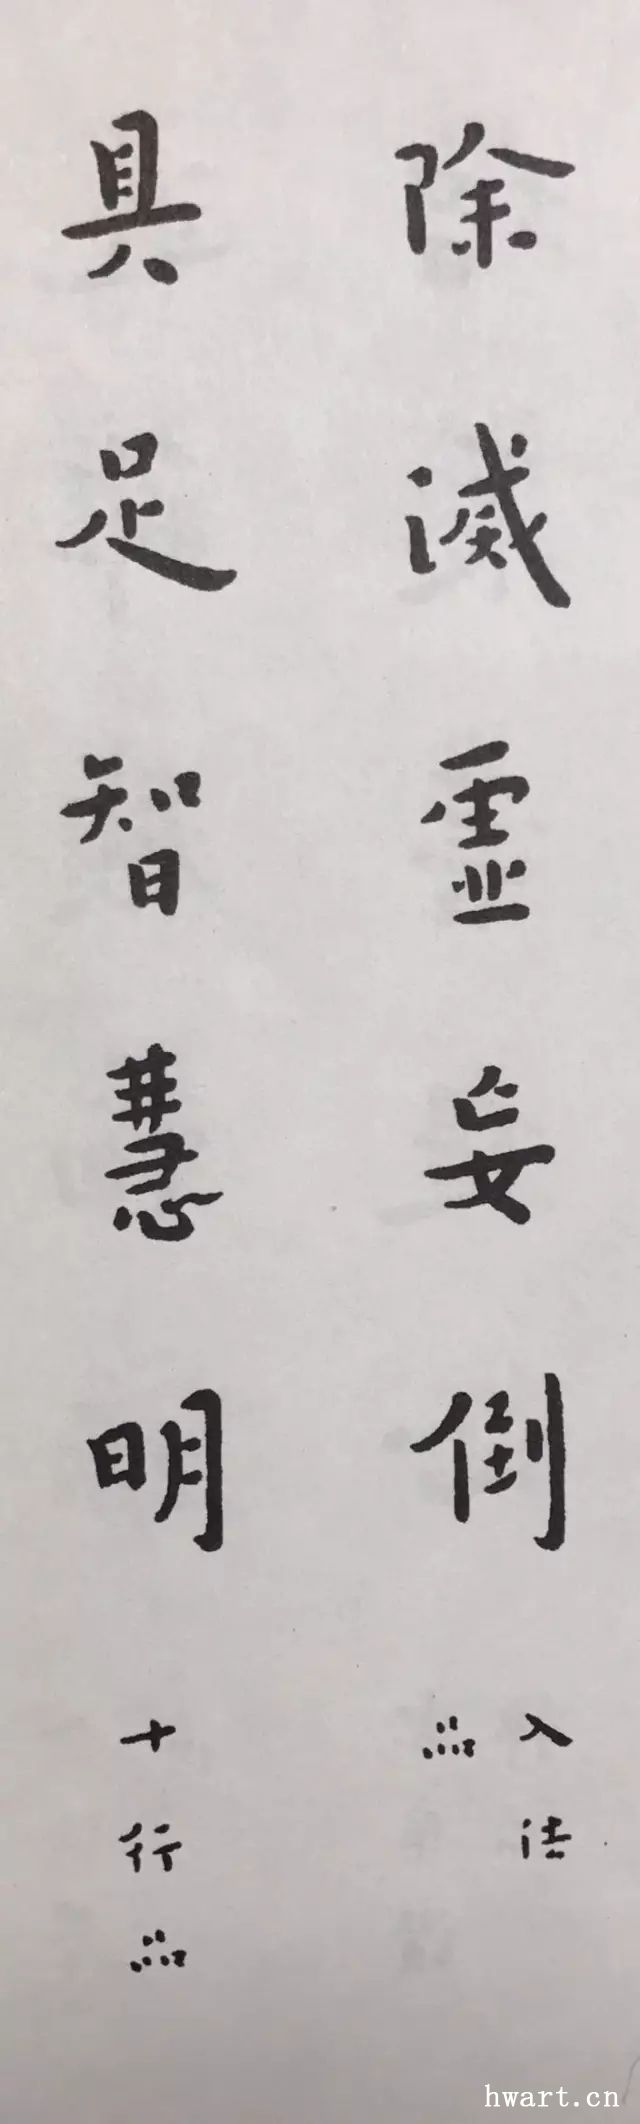 除滅虛妄倒
入法
品
具足智慧明
十行品
hwart.cn